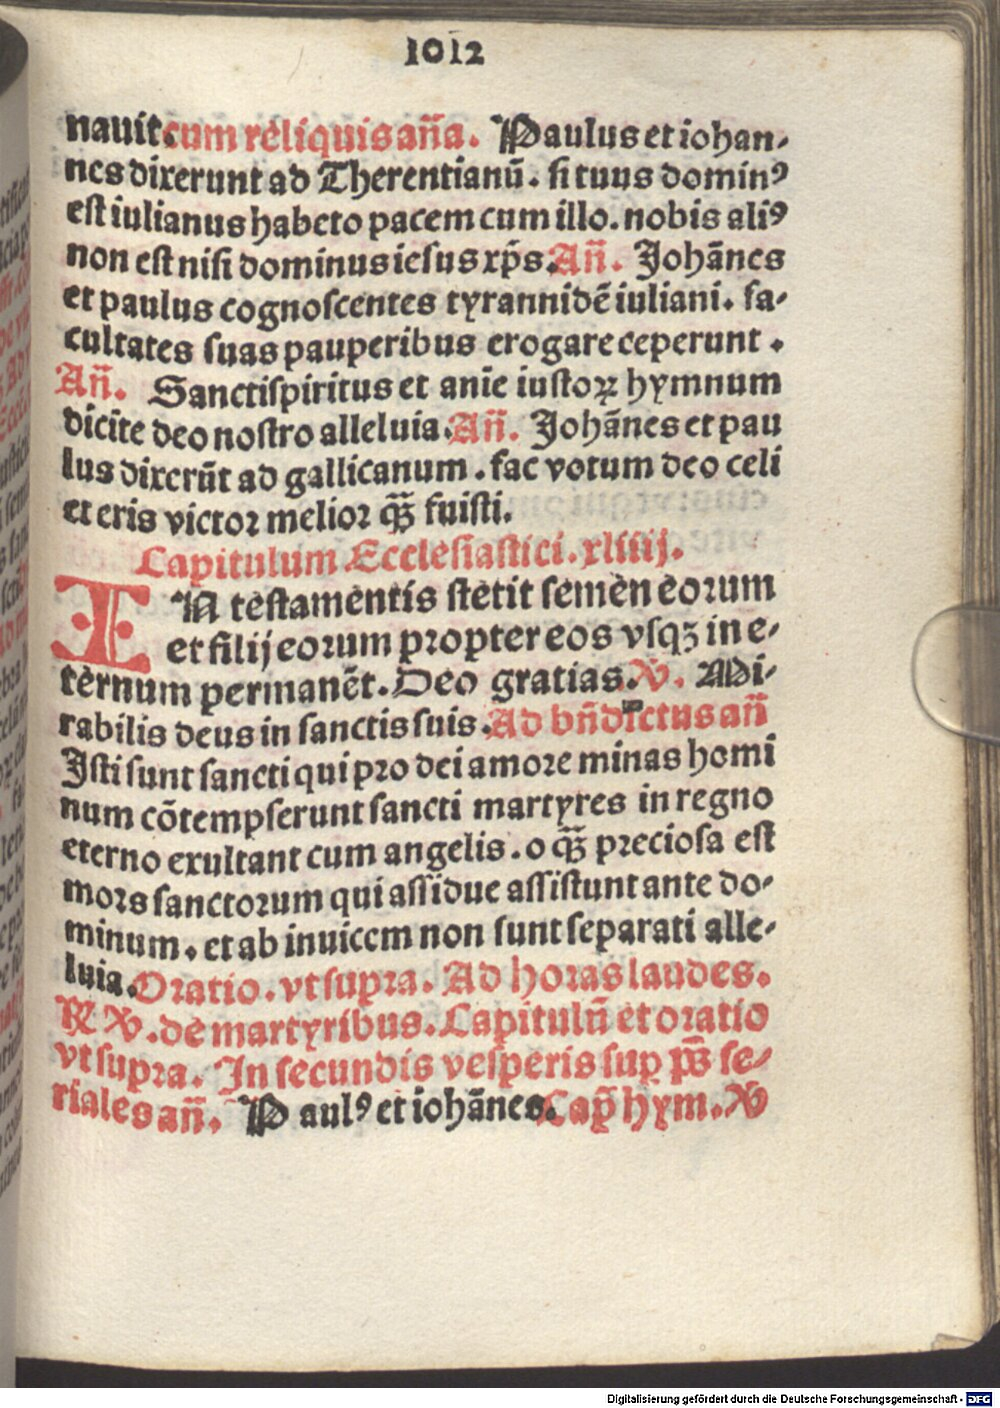 1012
nauit.cum reliquis aña. Paulus et iohan-
nes dixerunt ad Therentianū. si tuus dominꝰ
est iulianus habeto pacem cum illo. nobis aliꝰ
non est nisi dominus iesus xp̄s. Añ. Johānes
et paulus cognoscentes tyrannidē iuliani. fa-
cultates suas pauperibus erogare ceperunt.
Añ. Sancti spiritus et anīe iustoꝝ hymnum
dicite deo nostro alleluia. Añ. Johānes et pau
lus dixerūt ad gallicanum. fac votum deo celi
et eris victor melior qꝫ̄ fuisti.
Capitulum Ecclesiastici. xliiij.
IN testamentis stetit semen eorum
et filij eorum propter eos vsqꝫ in e-
ternum permanēt. Deo gratias. V. Mi-
rabilis deus in sanctis suis. Ad bn̄dictus añ
Isti sunt sancti qui pro dei amore minas homi
num cōtempserunt sancti martyres in regno
eterno exultant cum angelis. o qꝫ̄ preciosa est
mors sanctorum qui assidue assistunt ante do-
minum. et ab inuicem non sunt separati alle-
luia. Oratio. vt supra. Ad horas laudes.
R V. de martyribus. Capitulū et oratio
vt supra. In secundis vesperis sup ps̄ fe-
riales añ. Paulꝰ et iohānes. Cap̄ hym. V
Digitalisierung gefördert durch die Deutsche Forschungsgemeinschaft - DFG